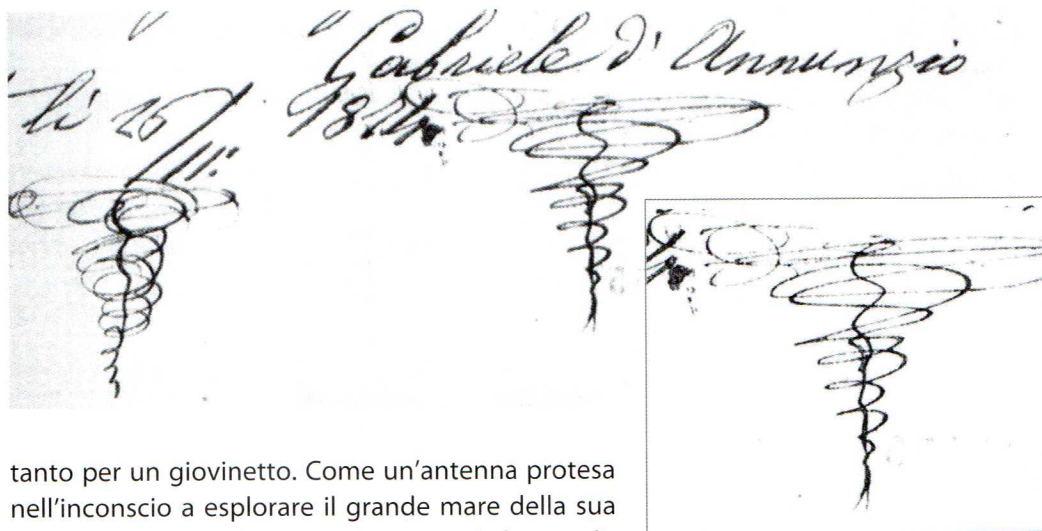 Gabriele d'Annunzio
li 26
tanto per un giovinetto. Come un'antenna protesa
nell'inconscio a esplorare il grande mare della sua